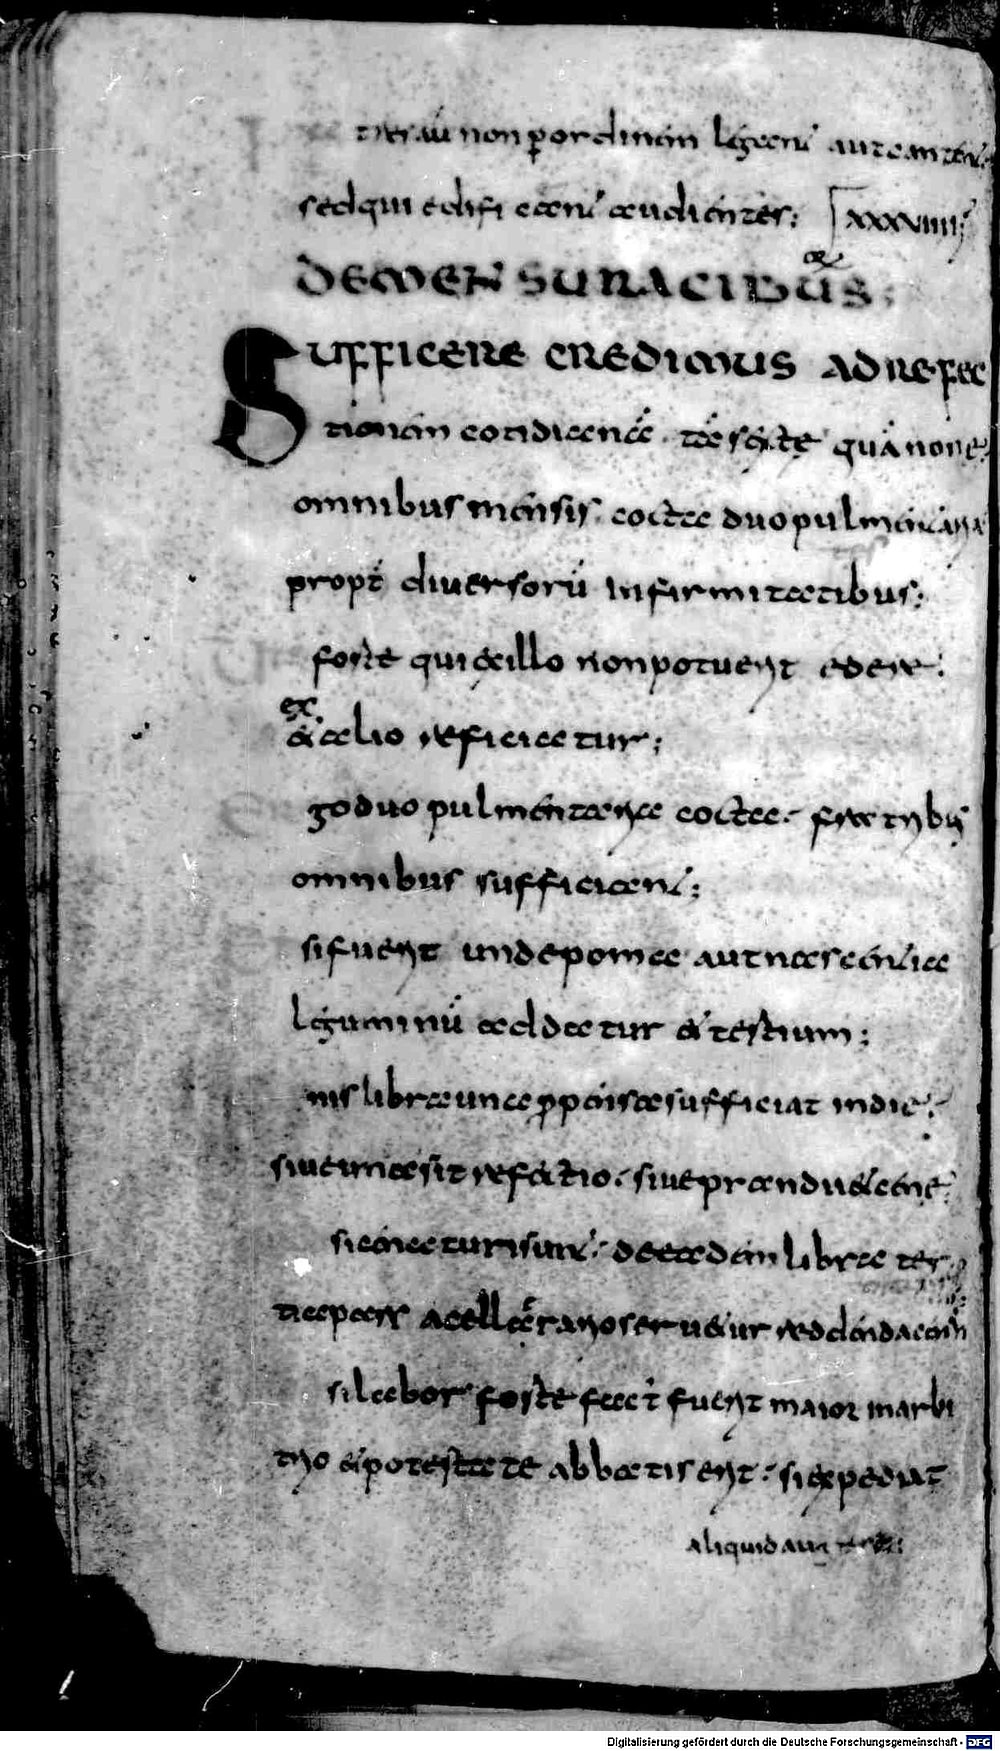 tres aut̄ non p̲ ordinem legant aut cantent
sed qui edificant audientes; XXXVIIII;
DE MENSURA CIBUS;
Sufficere credimus ad refec
tionem cotidianā tā sexte quā none
omnibus mensis cocta duo pulmentaria
propt̄ diversorū infirmitatibus;
forte qui ex illo non potuerit edere;
ex alio reficiatur;
go duo pulmentaria cocta fratribus
omnibus sufficiant;
si fuerit unde poma aut nascentia
leguminū addatur et tertium;
nis libra una p̲pensa sufficiat in die;
sive una sit refectio sive prandii et cene
si cenaturi sunt de eadem libra ter
tia pars a cellarario servetur reddenda cen̄
si labor forte fact̄ fuerit maior in arbi
trio et potestate abbatis erit si expediat
aliquid